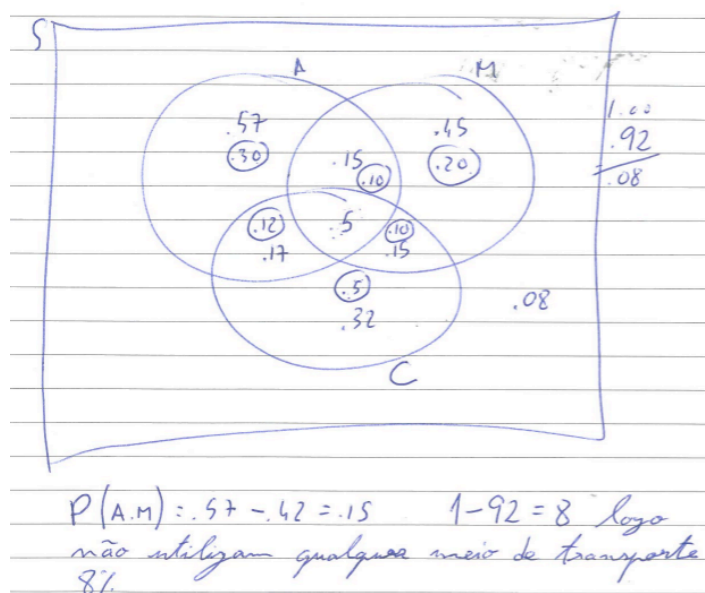 S
A
M
.57
.30
.45
.20
.15
.10
1.00
.92
.08
.12
.17
.5
.10
.15
.5
.32
.08
C
P(A.M) = .57 - .42 = .15 1-92 = 8 logo
não utilizam qualquer meio de transporte
8%